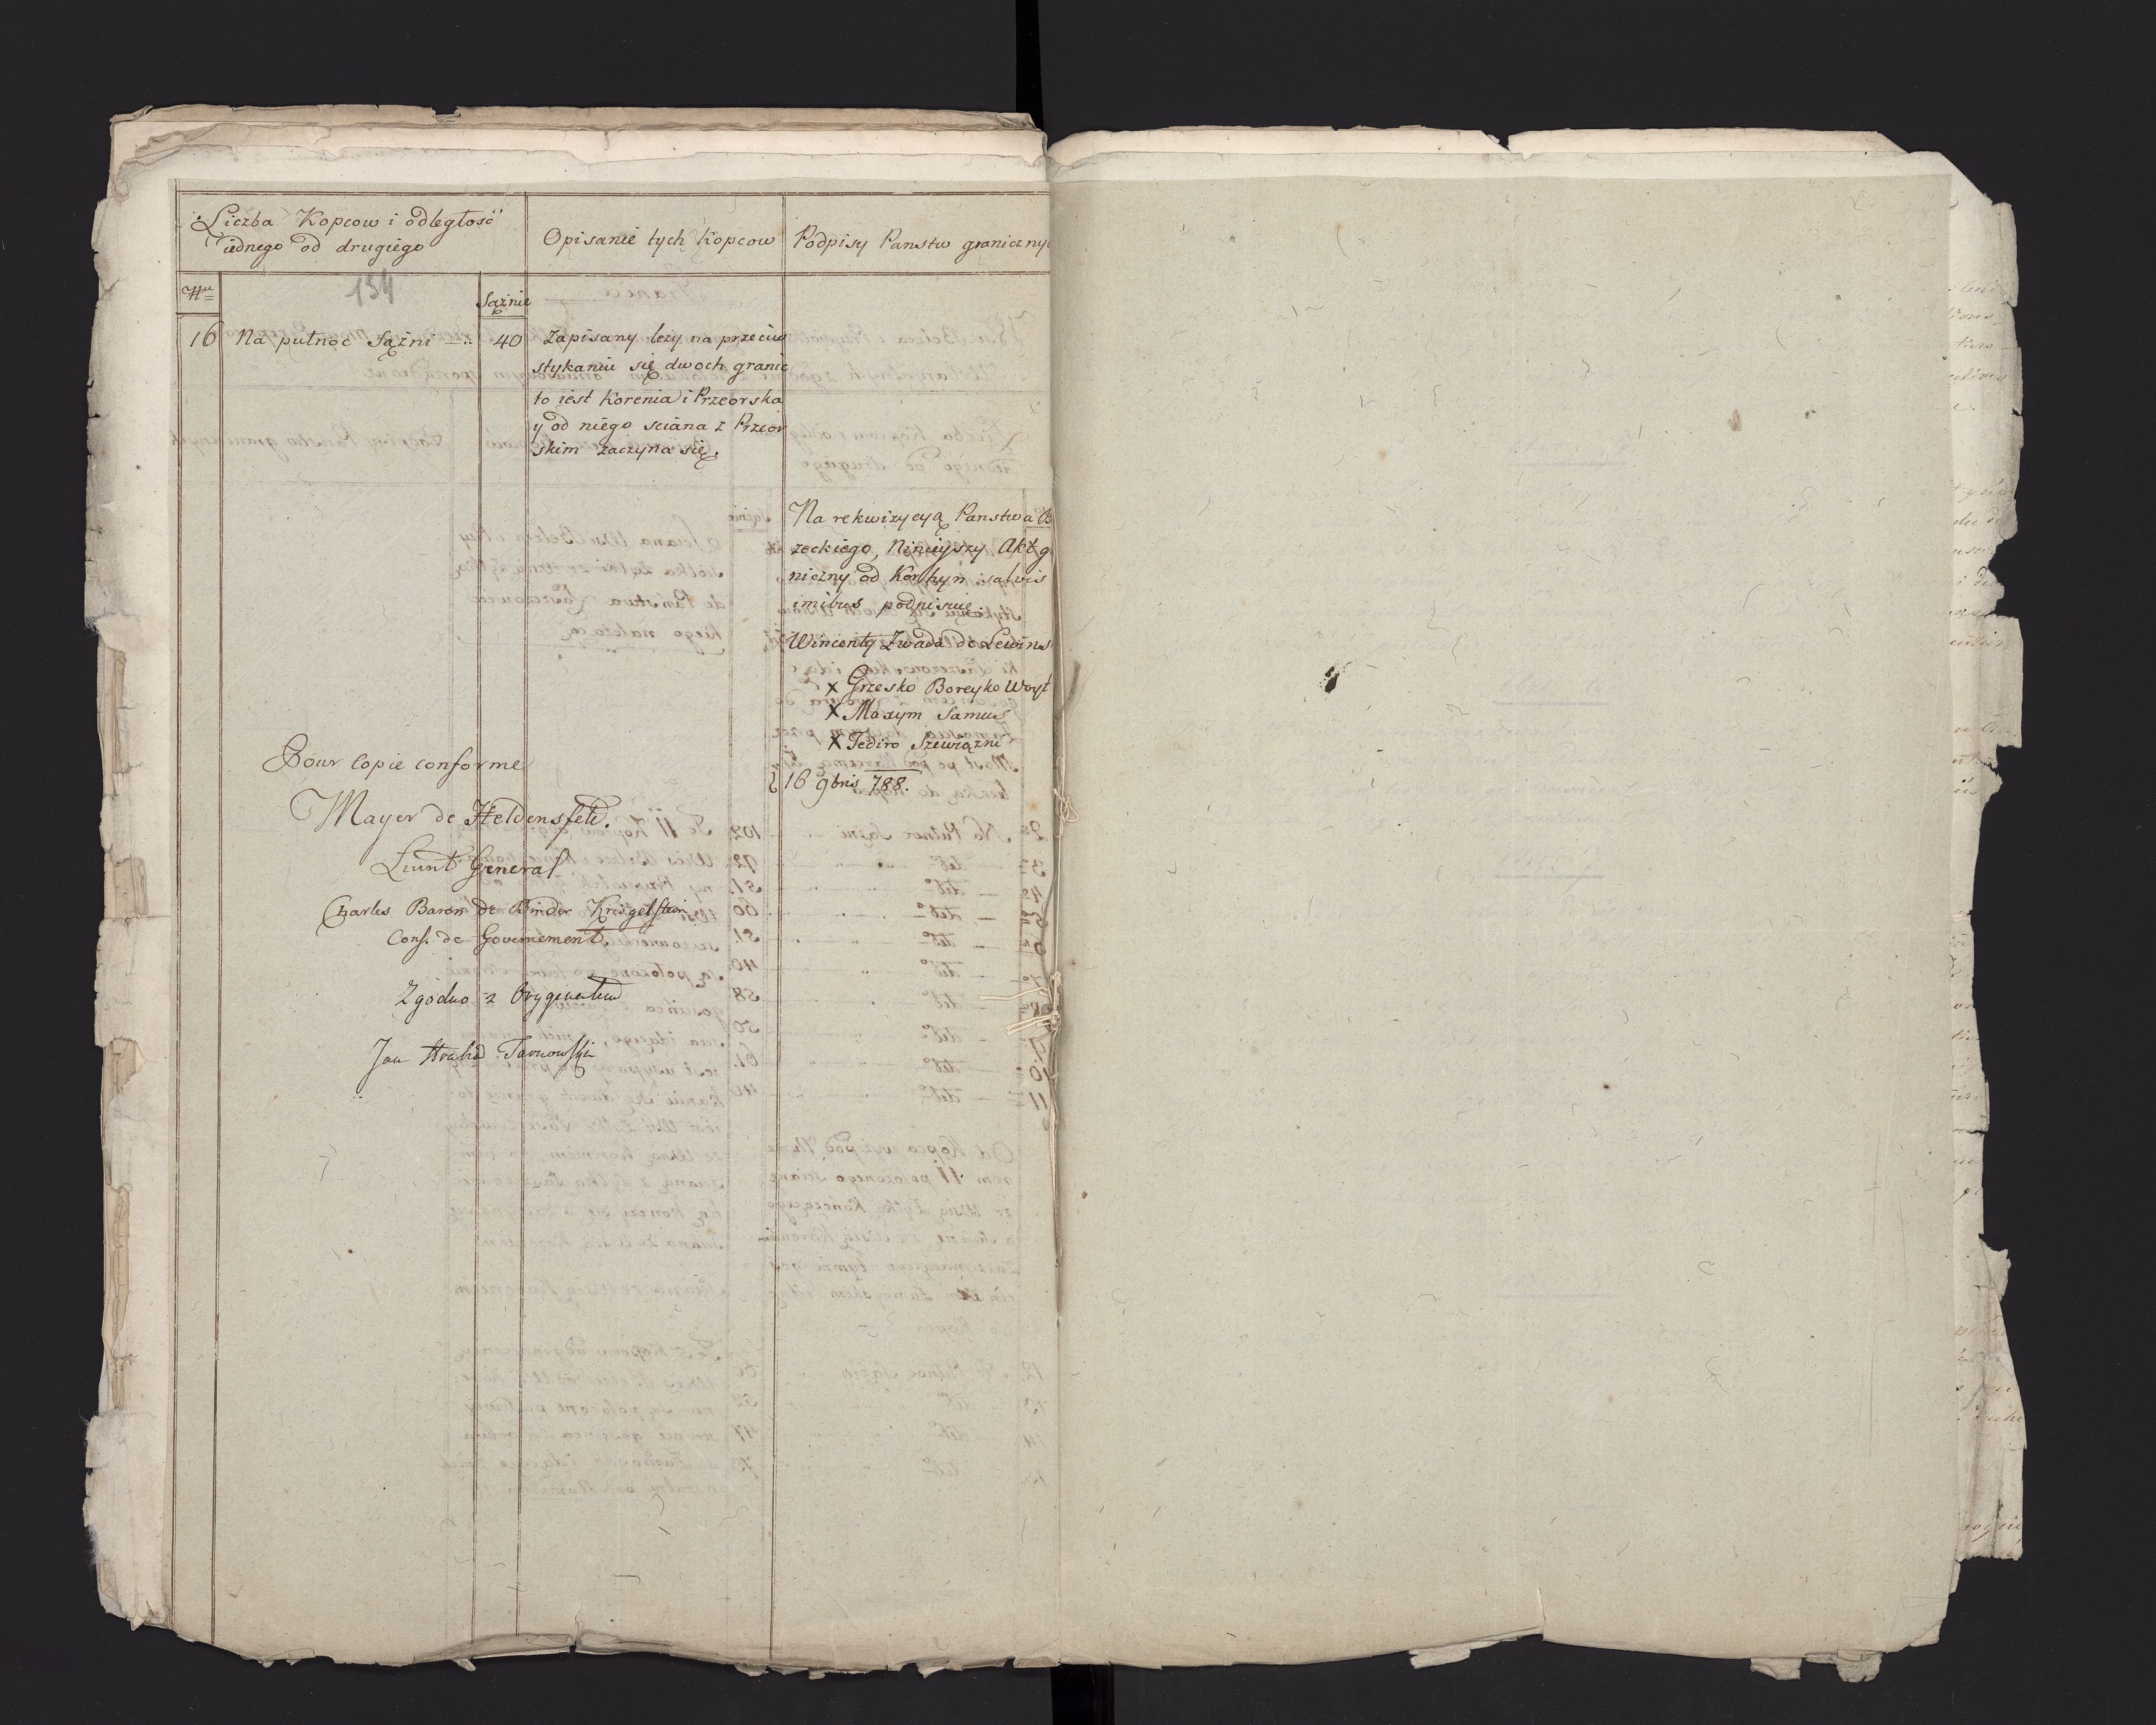 Liczba Kopcow i odległość
iednego od drugiego
Opisanie tych Kopcow
Podpisy Panstw graniczny
134
Sążnie
16 Na pułnoc Sążni 40
Zapisany leży na przeciw
stykaniu się dwoch granic
to iest Korenia i Przeorska
y od niego sciana z Przeor
skim zaczyna się.
Na rekwizycyą Panstwa B
zeckiego, Ninieyszy Akt g
niczny od Korhyn salvis
imibus podpisuię.
Wincenty Zwada de Lewins
x Grzesko Boreyko Woyt
x Maxym Samus
x Fediro Szewiązni
16 9bris 788.
Pour Copie conforme
Mayer de Heldensfeld.
Lieunt General.
Charles Baron de Binder Krigelstein
Cons. de Gouvernement.
Zgodno z Oryginałem
Jan Hrabia Tarnowski